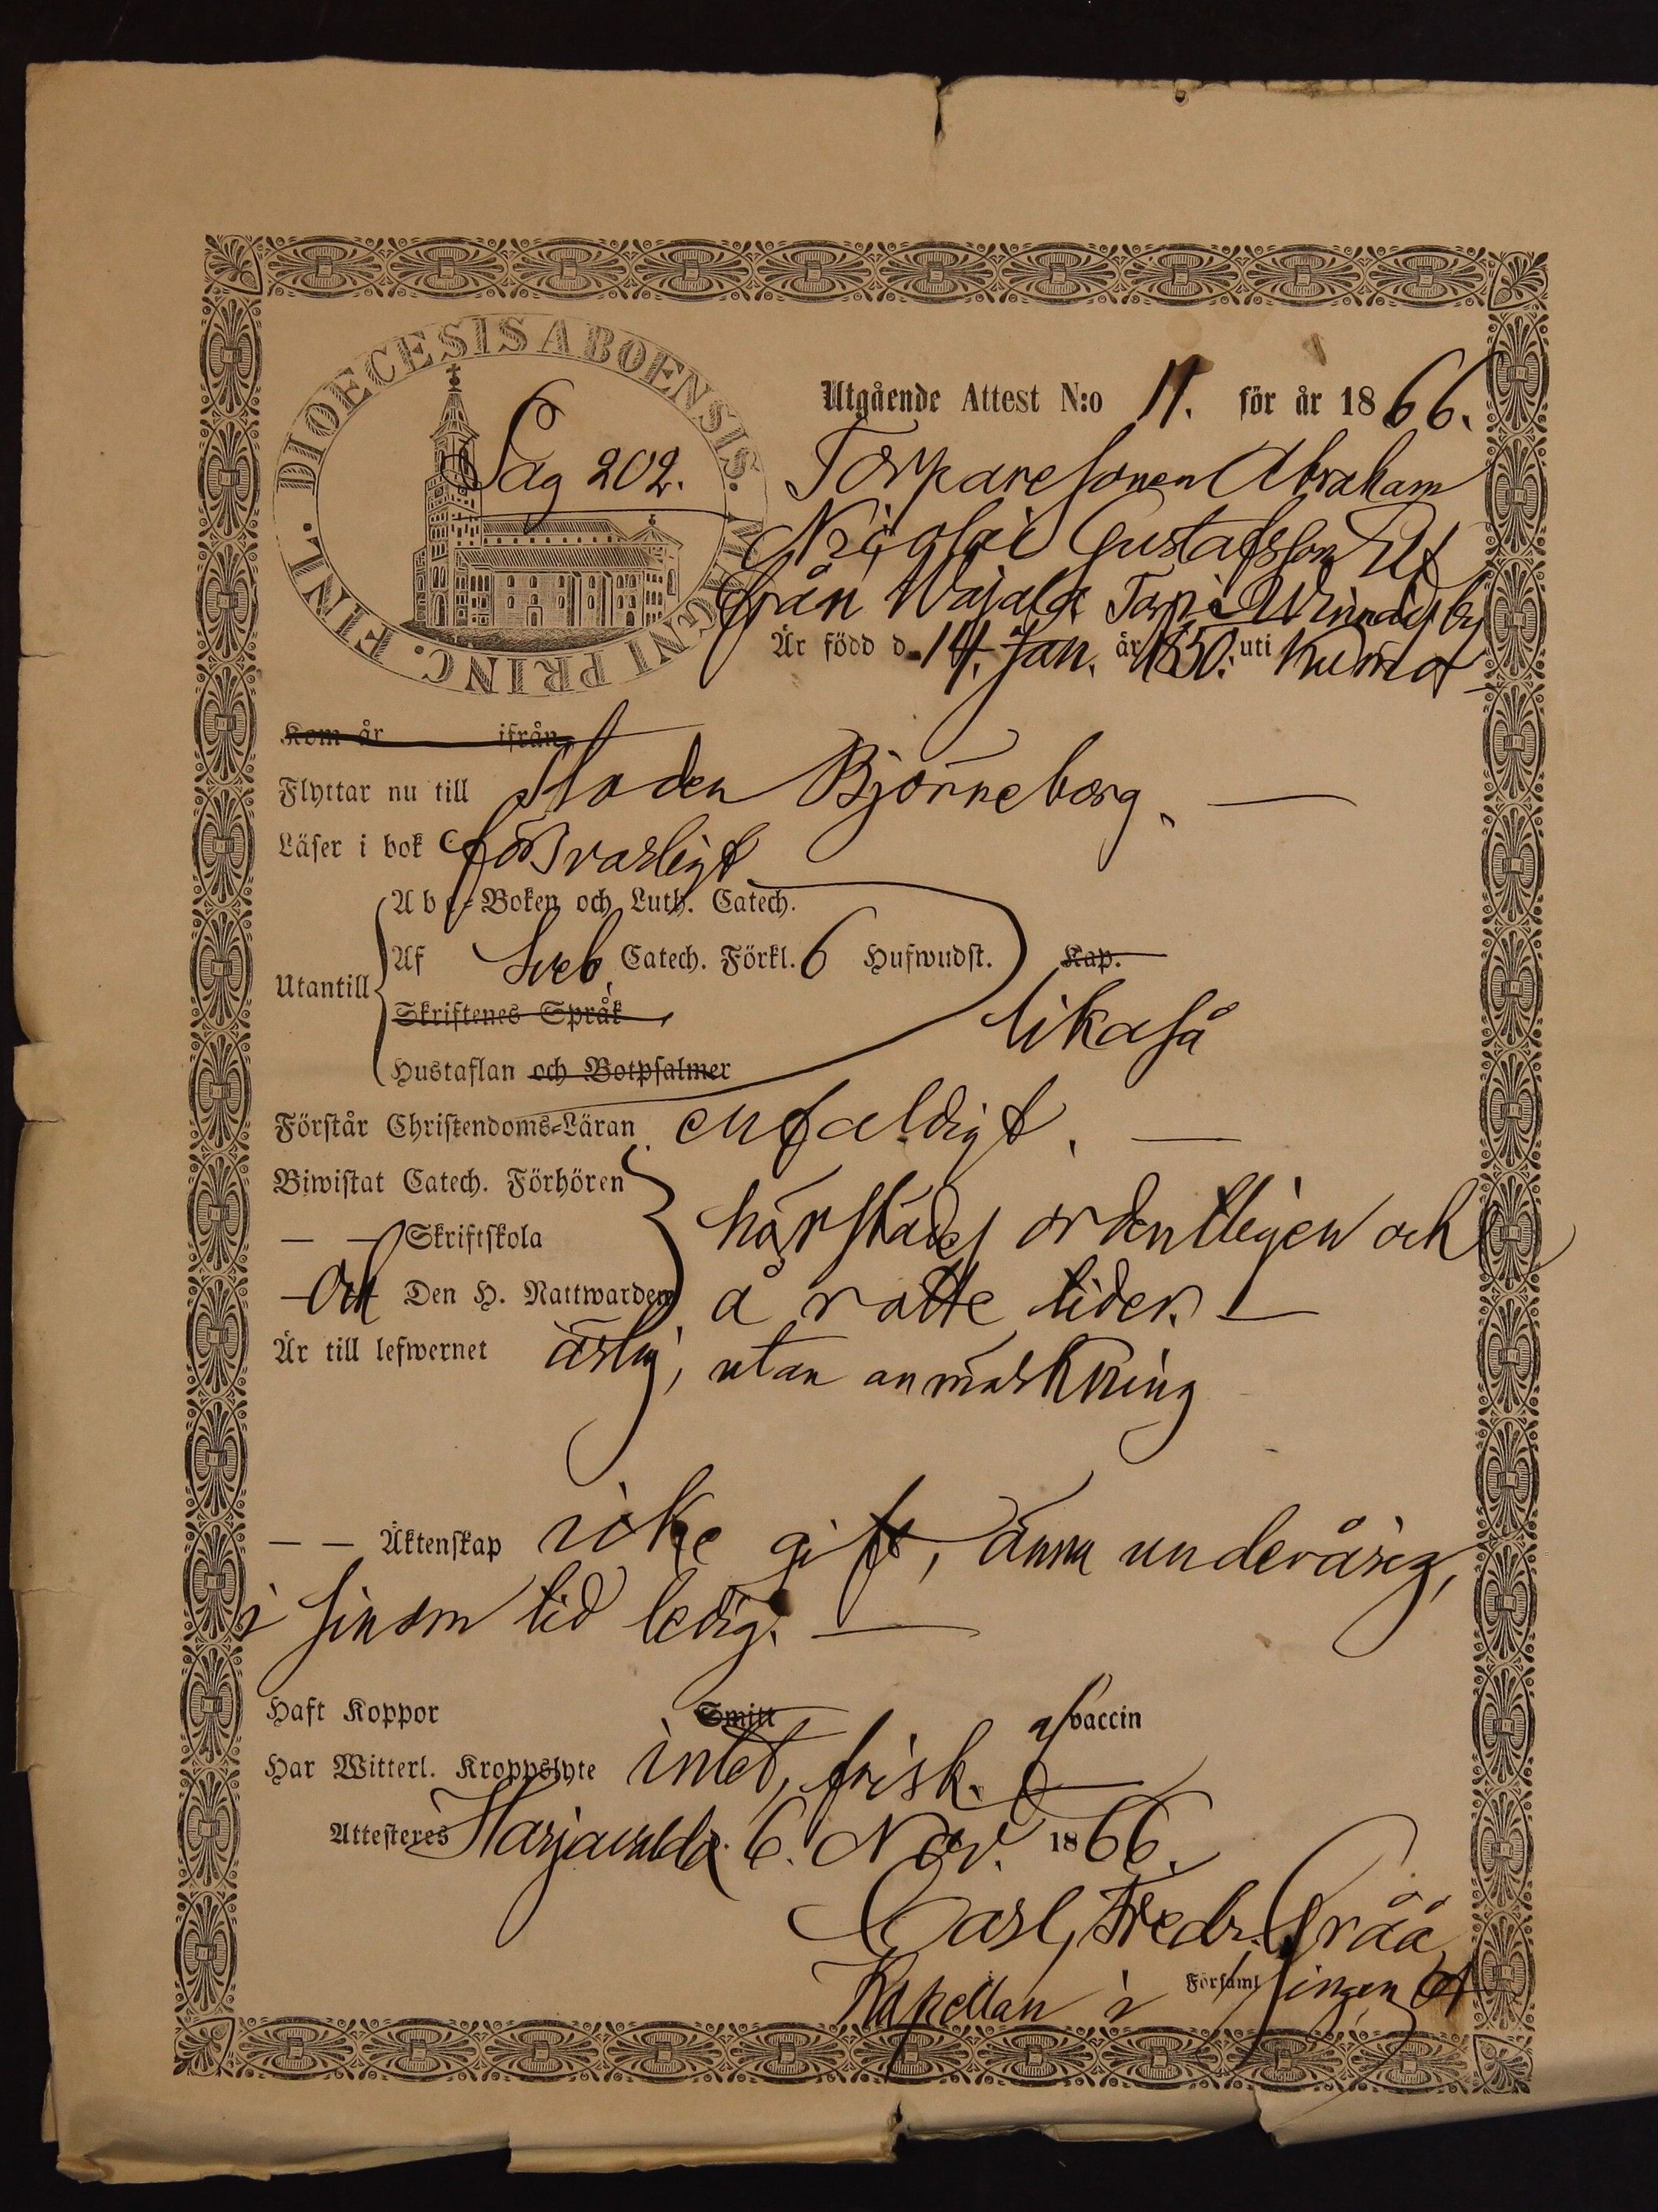 DIOECESIS ABOENSIS. MAGNI PRINC. FINL.
Pag 202.
Utgående Attest N:o 11. för år 1866.
Torparesonen Abraham
Nicolai Gustafsson
från Wajala Torp i by
Är född d. 14. Jan. år 1850. uti Kumo
Kom år ifrån
Flyttar nu till staden Björneborg.
Läser i bok försvarligt
Abc-Boken och Luth. Catech.
Utantill Af Sveb. Catech. Förkl. 6 Hufwudst. Kap.
Skriftenes Språk
likaså
Hustaflan och Botpsalmer
Förstår Christendoms-Läran enfaldigt.
Biwistat Catech. Förhören
— — Skriftskola härstädes ordentligen och
— och Den H. Nattwarden å rätte tider. —
Är till lefwernet ärlig, utan anmärkning
— — Äktenskap icke gift, ännu underårig,
i sinom tid ledig. —
Haft Koppor Smitt af vaccin
Har Witterl. Kroppslyte intet, frisk. —
Attesteres Harjavalda 6. Nov. 1866.
Carl Fredr. Gråå
Kapellan i Församlingen